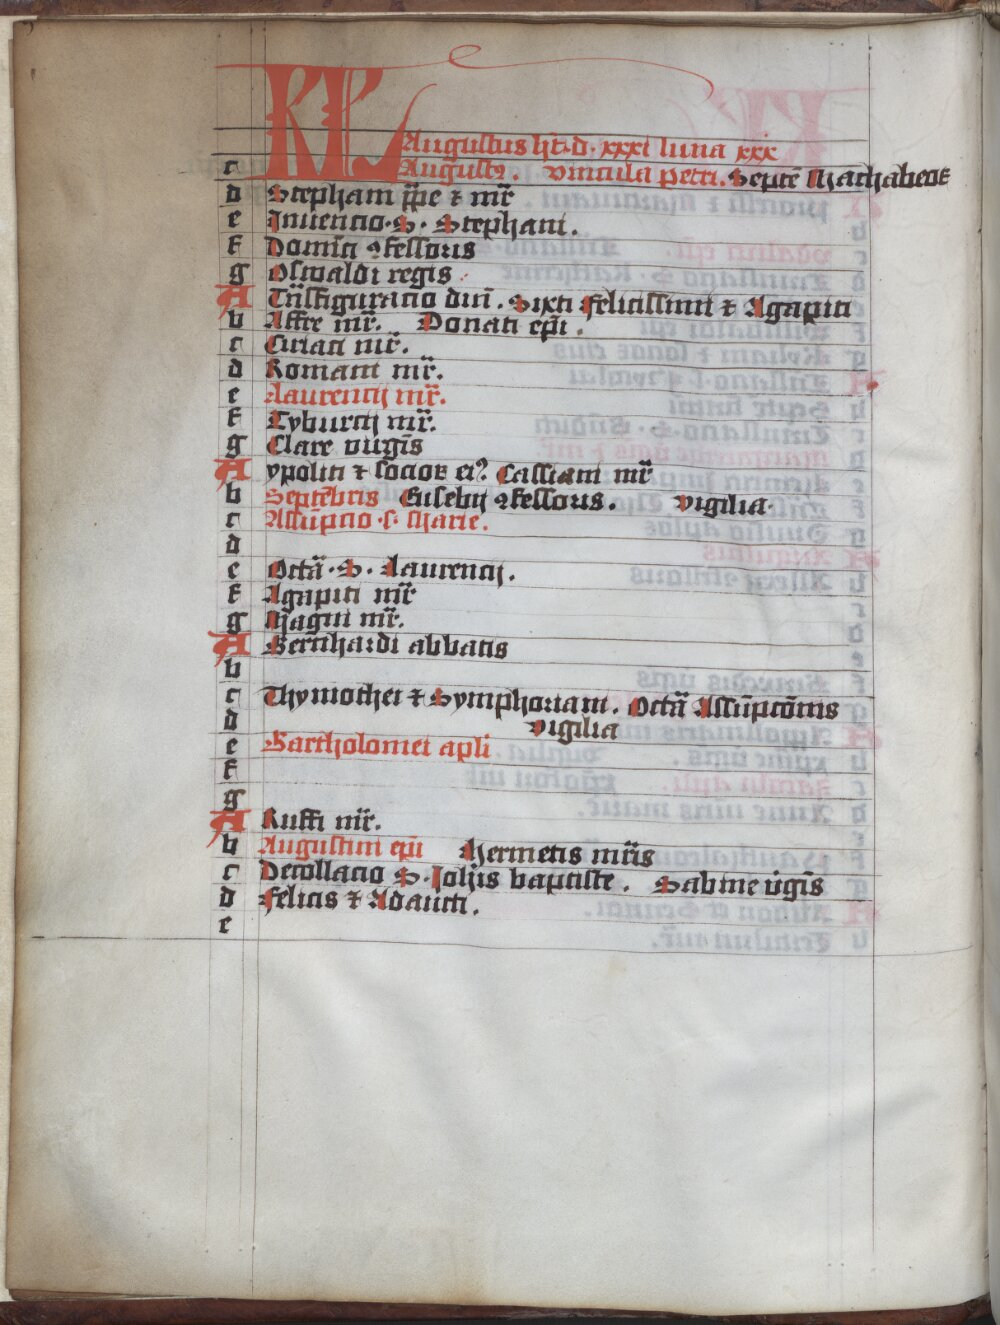 KL Augustus ht d. xxxi luna xxx
c August9. vincula petri. Septē Machabeoꝝ
d Stephani ꝑpe ⁊ mr̄
e Inuencio. S. Stephani.
f Domīci ꝯfessoris
g Oswaldi regis
A Trāsfiguracio dnī. Sixti felicissimi ⁊ Agapiti
b Affre mr̄. Donati ep̄i.
c Ciriaci mr̄.
d Romani mr̄.
e Laurencij mr̄.
f Tyburcij mr̄.
g Clare virgīs
A ypoliti ⁊ socioꝝ ei9. Cassiani mr̄
b Septēbris Eusebij ꝯfessoris. vigilia.
c Assūpcio. s. Marie.
d
e Octā. S. Laurencij.
f Agapiti mr̄
g Magni mr̄.
A Bernhardi abbatis
b
c Thymothei ⁊ Symphoriani. Octā Assūpcōnis
d vigilia
e Bartholomei apli
f
g
A Ruffi mr̄.
b Augustini ep̄i Hermetis mr̄is
c Decollacio S. Joh̄is baptiste. Sabine v̄gīs
d Felicis ⁊ Adaucti.
e